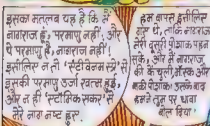 इसका मतलब यह है कि मैं
नागराज हूं, परमाणु नहीं, और
ये परमाणु है, नागराज नहीं!
इसीलिए न तो 'स्टैटीवेनम गन' से
इसकी परमाणु ऊर्जा खत्म हुई,
और न ही 'स्टॉमिक सकर' से
मेरे नाग नष्ट हुए.
हम वापस इसीलिए
आए थे, ताकि नागराज
मेरी दूसरी पोशाक पहन
सके, और मैं नागराज
की के चुली, मास्क और
पोशाक! उसके बाद
हमने तुम पर धावा
बोल दिया!